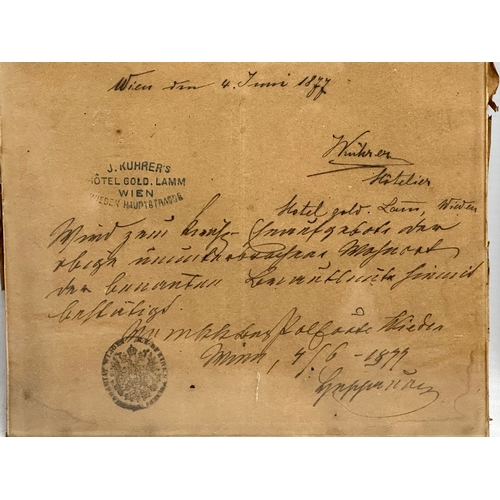 Wien den 4. Juni 1877
J. KÜHRER'S
HÔTEL GOLD. LAMM
WIEN
WIEDEN HAUPTSTRASSE
Kührer
Hotelier
Hotel gold. Lam, Wieden
Wird zum Aufgebote der
obige ununterbrochene Wohnort
der benannten Brautleute hiemit
bestätigt.
Wieden
Wien, 4/6 - 1877